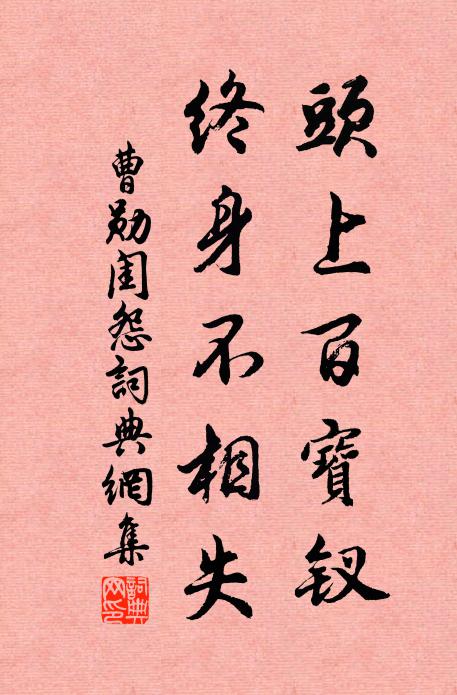 頭上百寶釵
終身不相失
曹勛閨怨詞典網集
詞典网印